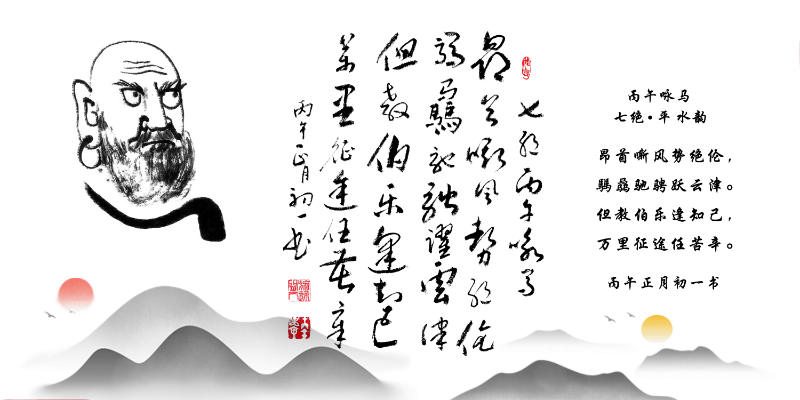 七绝丙午咏马
昂首嘶风势绝伦
骉骉驰骋跃云津
但教伯乐逢知己
万里征途任苦辛
丙午正月初一书
丙午咏马
七绝·平水韵
昂首嘶风势绝伦，
骉骉驰骋跃云津。
但教伯乐逢知己，
万里征途任苦辛。
丙午正月初一书